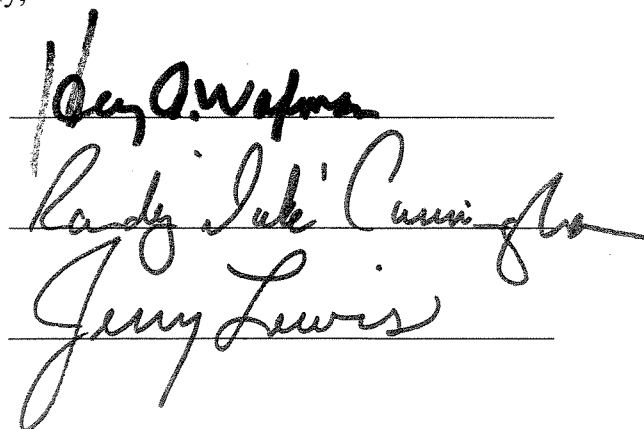 Henry A. Waxman
Randy "Duke" Cunningham
Jerry Lewis